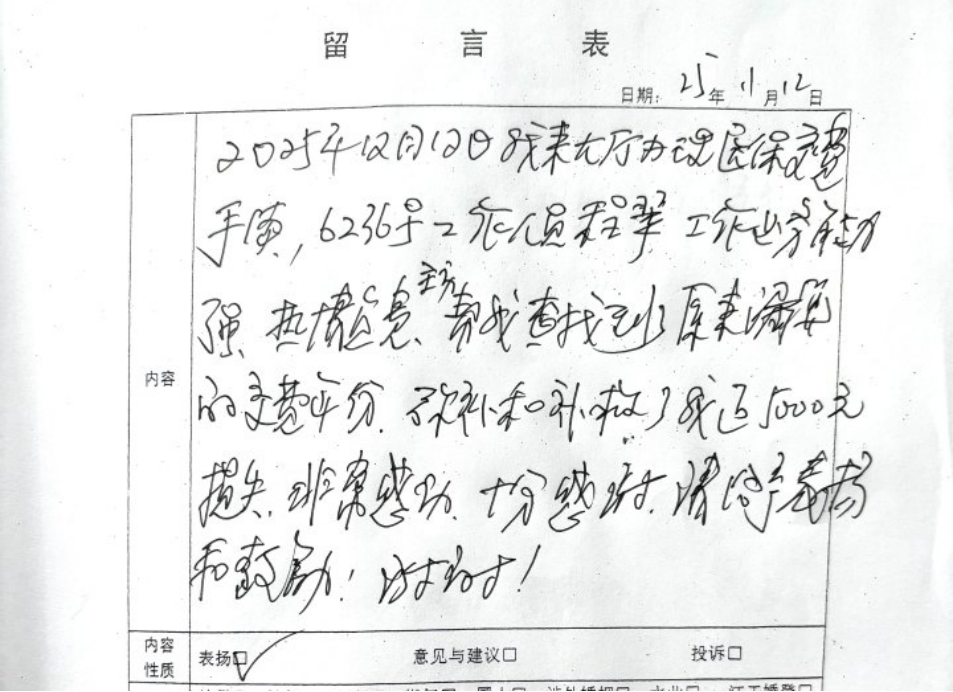 留言表
日期: 25年11月12日
2025年12月12日我来大厅办理医保交费
手续, 6236号工作人员程翠 工作业务能力
强、热情负责、主动帮我查找到了原来漏算
的交费年份, 弥补和补救了我近5000元
损失, 非常感动、十分感谢, 请给予表扬
和鼓励! 谢谢!
内容
内容
性质
表扬☐ 意见与建议☐ 投诉☐